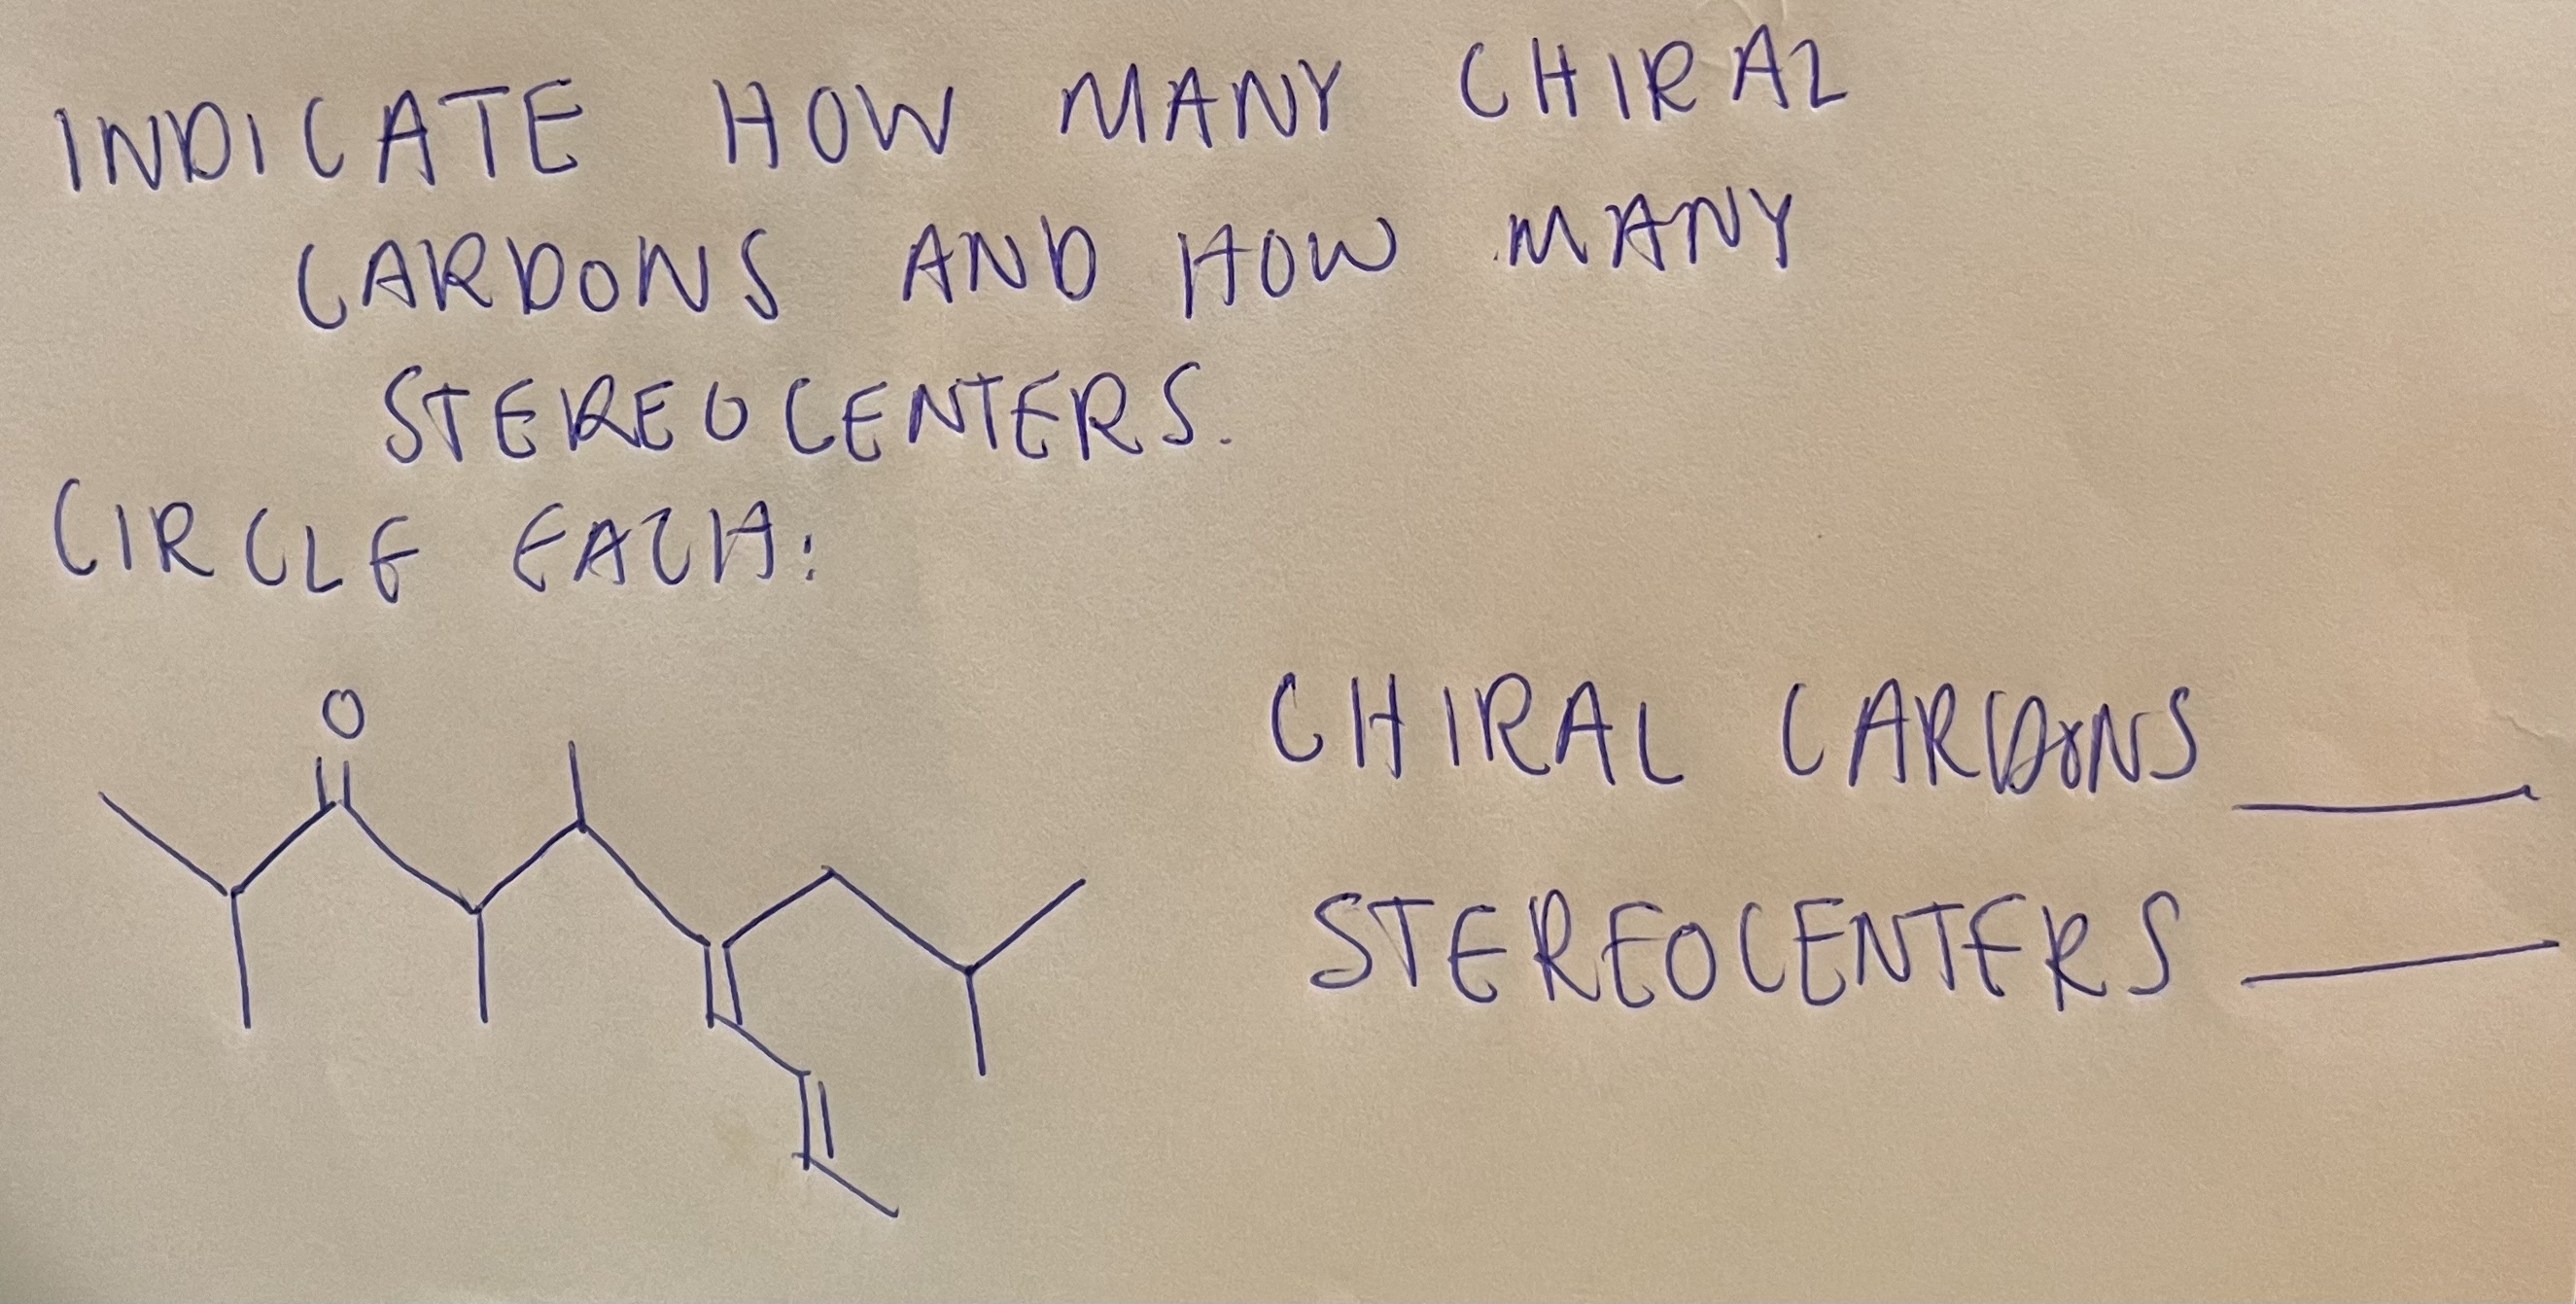 INDICATE HOW MANY CHIRAL
CARBONS AND HOW MANY
STEREOCENTERS.
CIRCLE EACH:
O
CHIRAL CARBONS ____
STEREOCENTERS ____